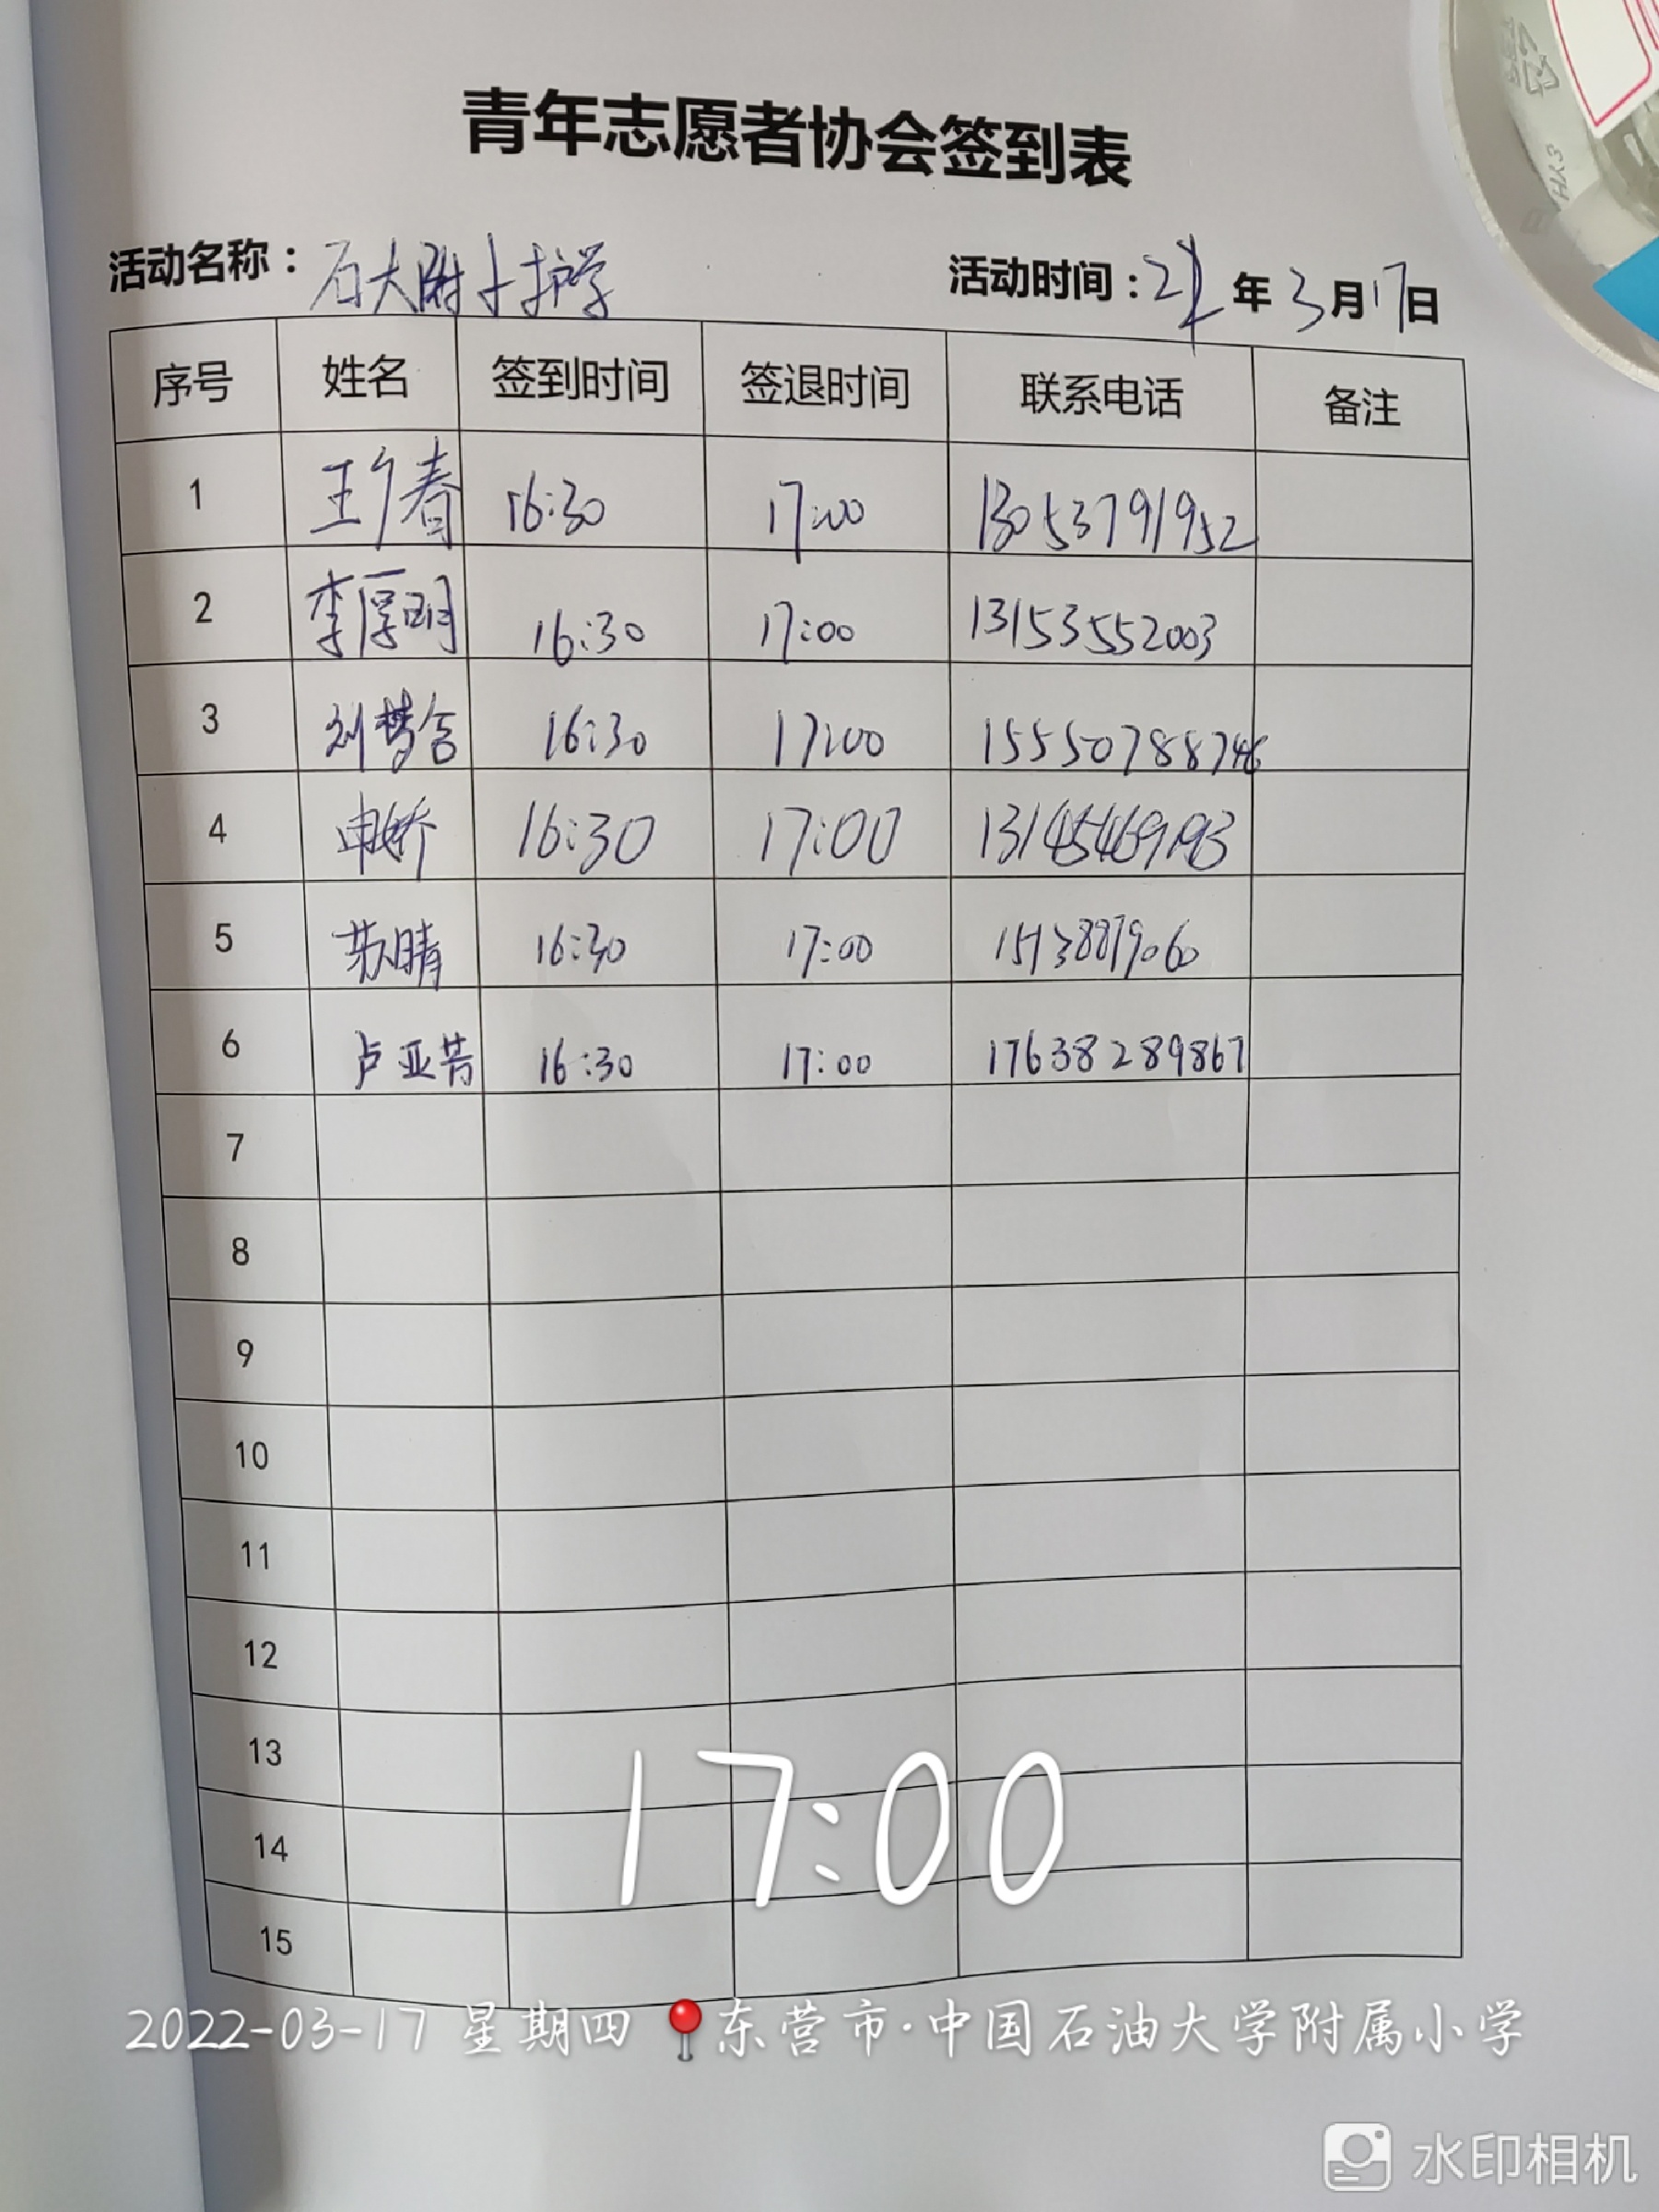 青年志愿者协会签到表
活动名称：石大附小护学 活动时间：22年3月17日
序号 姓名 签到时间 签退时间 联系电话 备注
1 王 春 16:30 17:00 13053791952
2 李厚明 16:30 17:00 13153552003
3 刘梦含 16:30 17:00
4 申娇 16:30 17:00
5 苏晴 16:30 17:00
6 卢亚芳 16:30 17:00 17638289867
7
8
9
10
11
12
13
14
15
17:00
2022-03-17 星期四 东营市·中国石油大学附属小学
水印相机